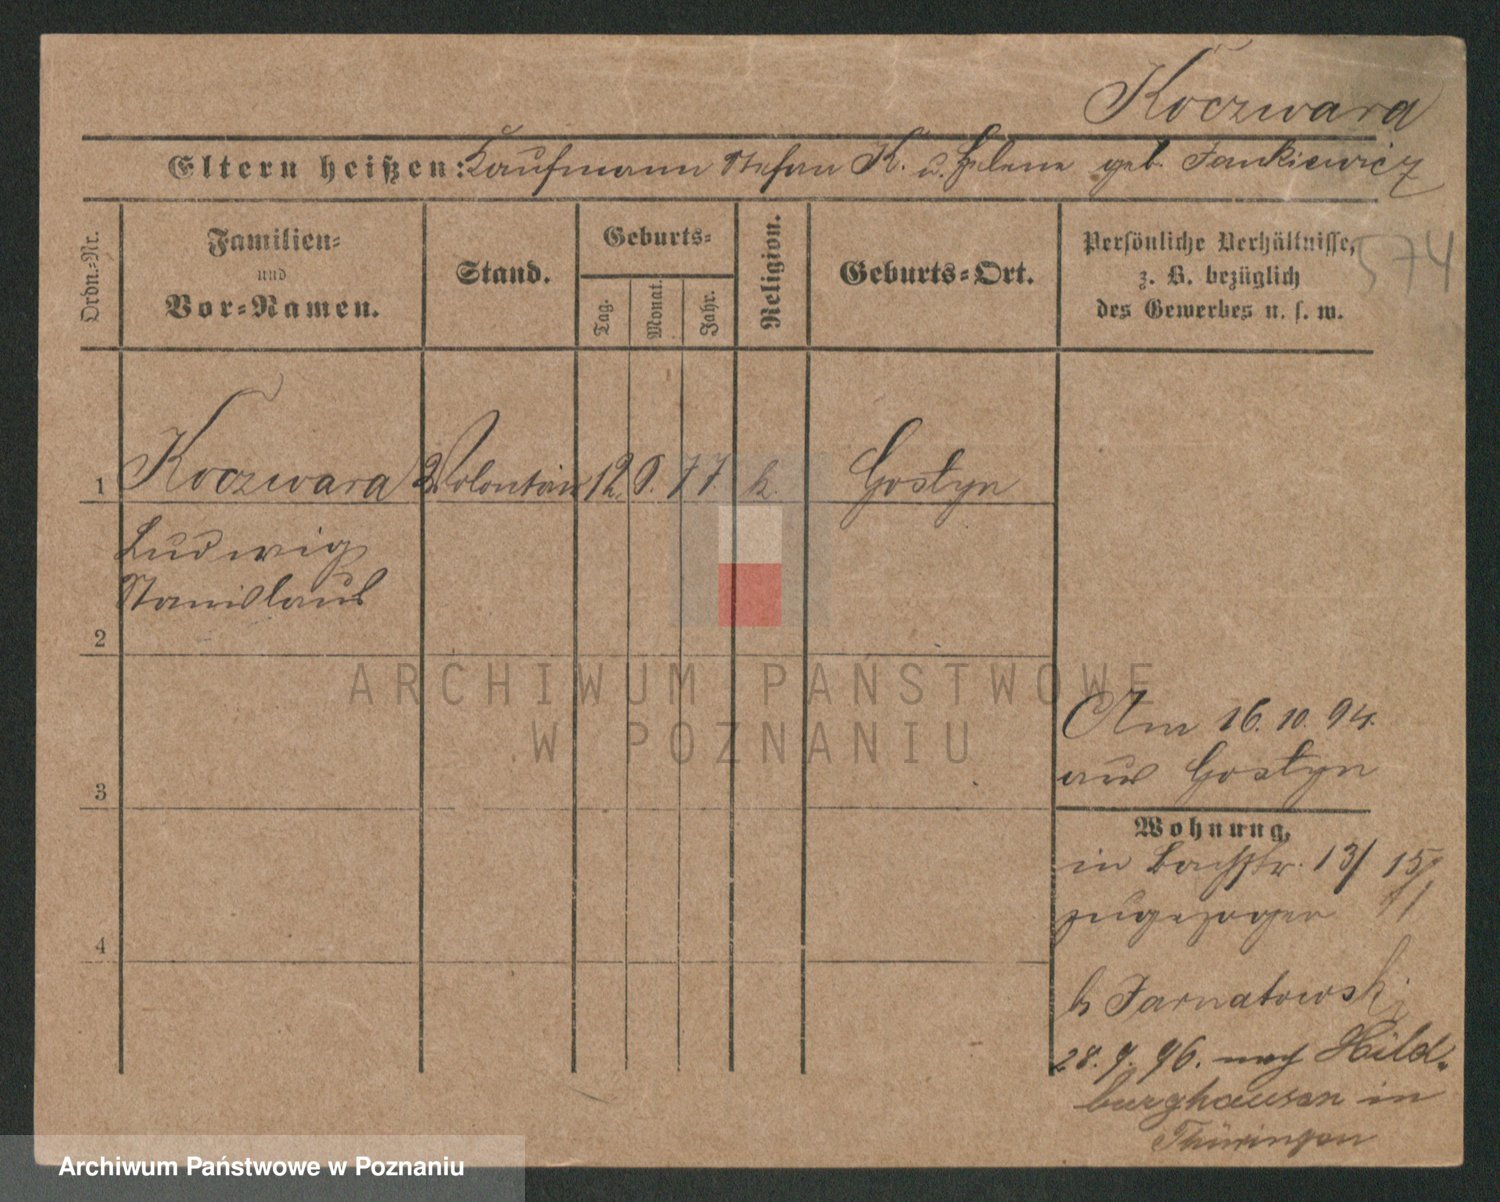 Koczwara
Eltern heißen: Kaufmann Stefan K. u. Helene geb. Jankiewicz
Ordn.-Nr.
Familien-
und
Vor-Namen.
Stand.
Geburts-
Tag.
Monat.
Jahr.
Religion.
Geburts-Ort.
Persönliche Verhältnisse,
z. B. bezüglich
des Gewerbes u. s. w.
574
1 Koczwara Volontär 12. 8. 77 k. Gostyn
Ludwig
Stanislaus
2
3
4
Am 16. 10. 94.
aus Gostyn
Wohnung,
in Bachstr. 13/ 15/
zugezogen
b Jarnatowski
28. 9. 96. nach Hild-
burghausen in
Thüringen
ARCHIWUM PAŃSTWOWE
W POZNANIU
Archiwum Państwowe w Poznaniu